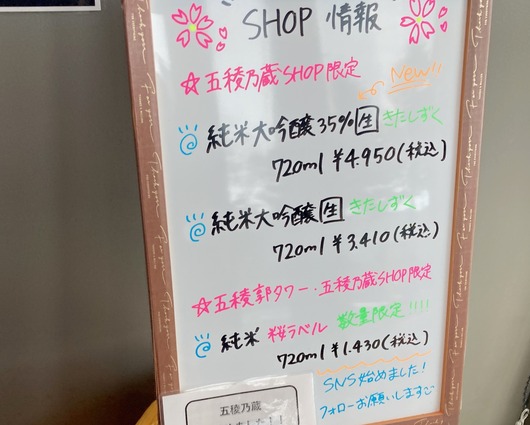 SHOP 情報
☆五稜乃蔵SHOP限定
New!!
純米大吟醸35%生 きたしずく
720ml ¥4.950(税込)
純米大吟醸生 きたしずく
720ml ¥3.410(税込)
☆五稜郭タワー・五稜乃蔵SHOP限定
純米 桜ラベル 数量限定!!!!
720ml ¥1.430(税込)
SNS始めました!
フォローお願いします
五稜乃蔵